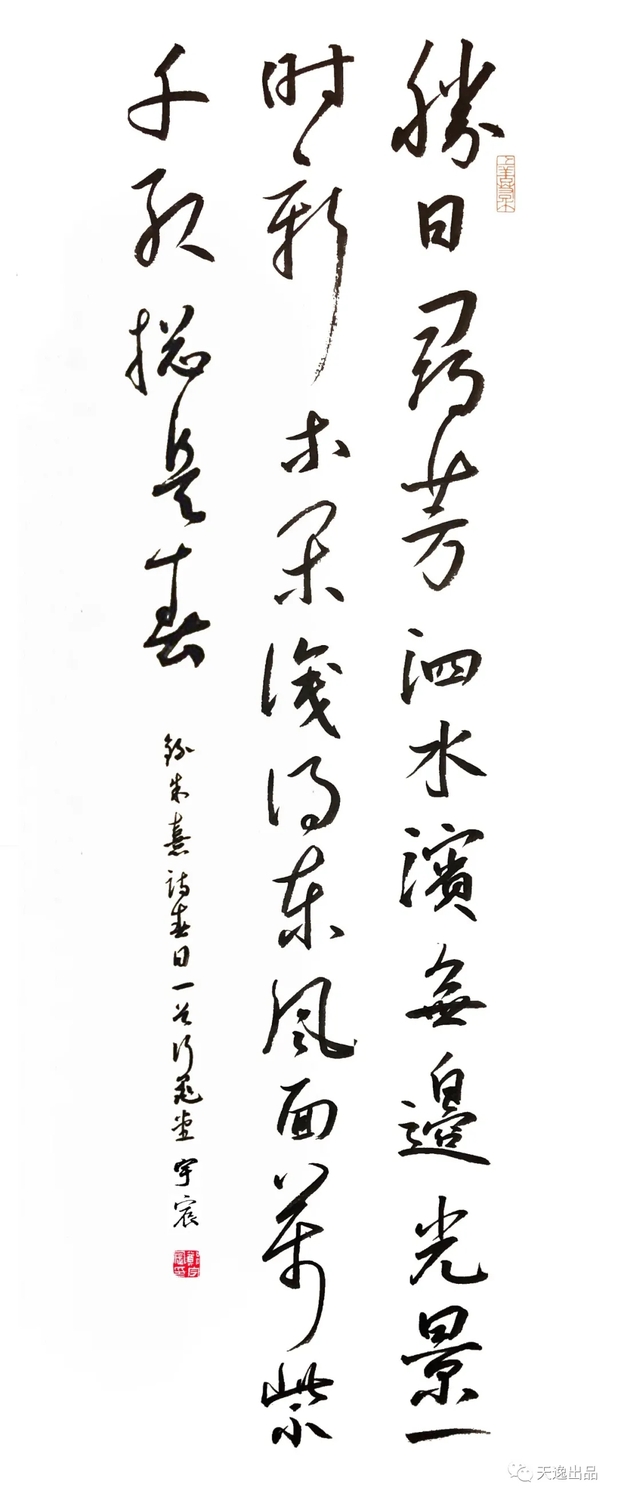 上善若水
勝日尋芳泗水濱無邊光景一
时〻新等閑識得東風面萬紫
千紅總是春
錄朱熹詩春日一首 堂 宇宸
天逸出品